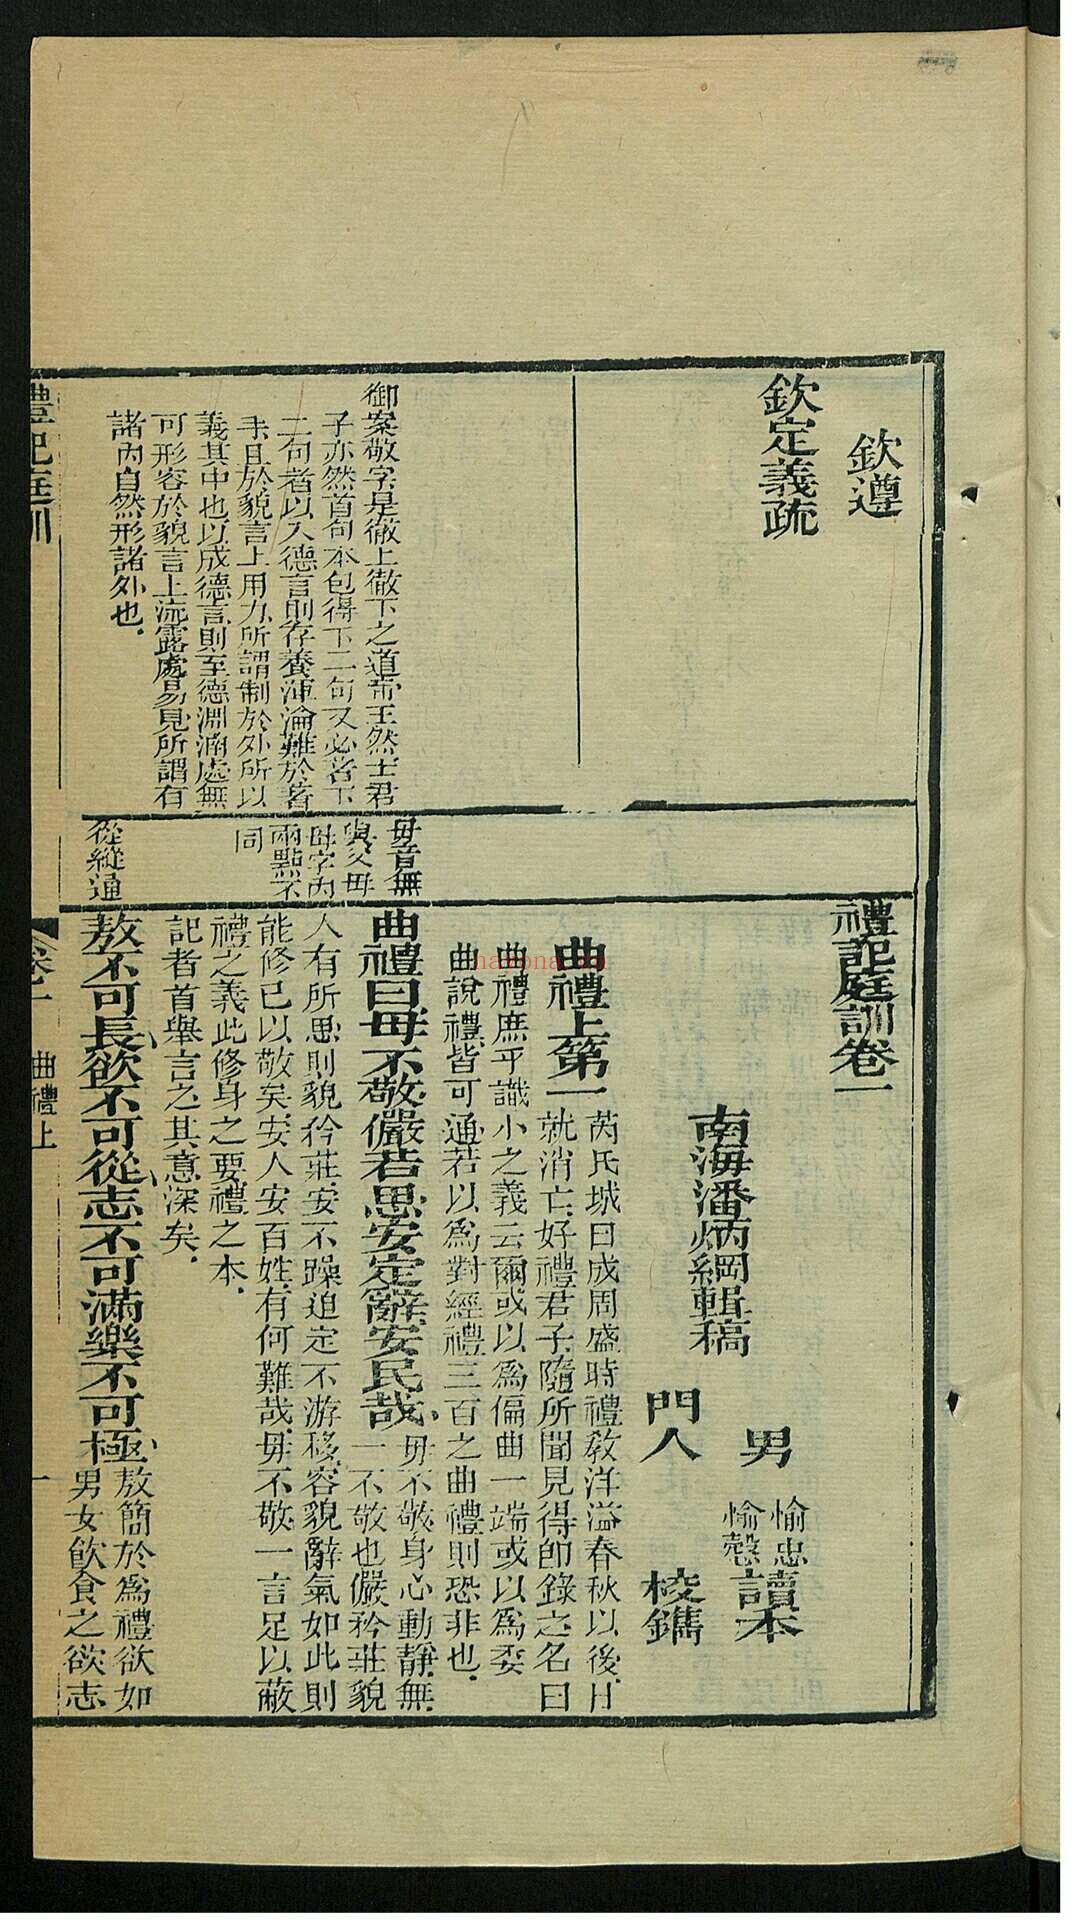 欽遵
欽定義疏
御案敬字是徹上徹下之道帝王然士君
子亦然首句本包得下二句又必著下
二句者以入德言則存養渾淪難於著
手且於貌言上用力所謂制於外所以
義其中也以成德言則至德淵涵處無
可形容於貌言上流露處易見所謂有
諸內自然形諸外也
毋音無
與父母
母字內
兩點不
同
從縱通
禮記庭訓卷一
男
愉忠
愉慤
讀本
南海潘炳綱輯稿
門人
校鐫
曲禮上第一
芮氏城曰成周盛時禮敎洋溢春秋以後日
就消亡好禮君子隨所聞見得卽錄之名曰
曲禮庶乎識小之義云爾或以爲偏曲一端或以爲委
曲說禮皆可通若以爲對經禮三百之曲禮則恐非也
曲禮曰毋不敬儼若思安定辭安民哉
毋不敬身心動靜無
一不敬也儼矜莊貌
人有所思則貌矜莊安不躁迫定不游移容貌辭氣如此則
能修已以敬矣安人安百姓有何難哉毋不敬一言足以蔽
禮之義此修身之要禮之本
記者首舉言之其意深矣
敖不可長欲不可從志不可滿樂不可極
敖簡於爲禮欲如
男女飮食之欲志
禮記庭訓
卷一
曲禮上
一